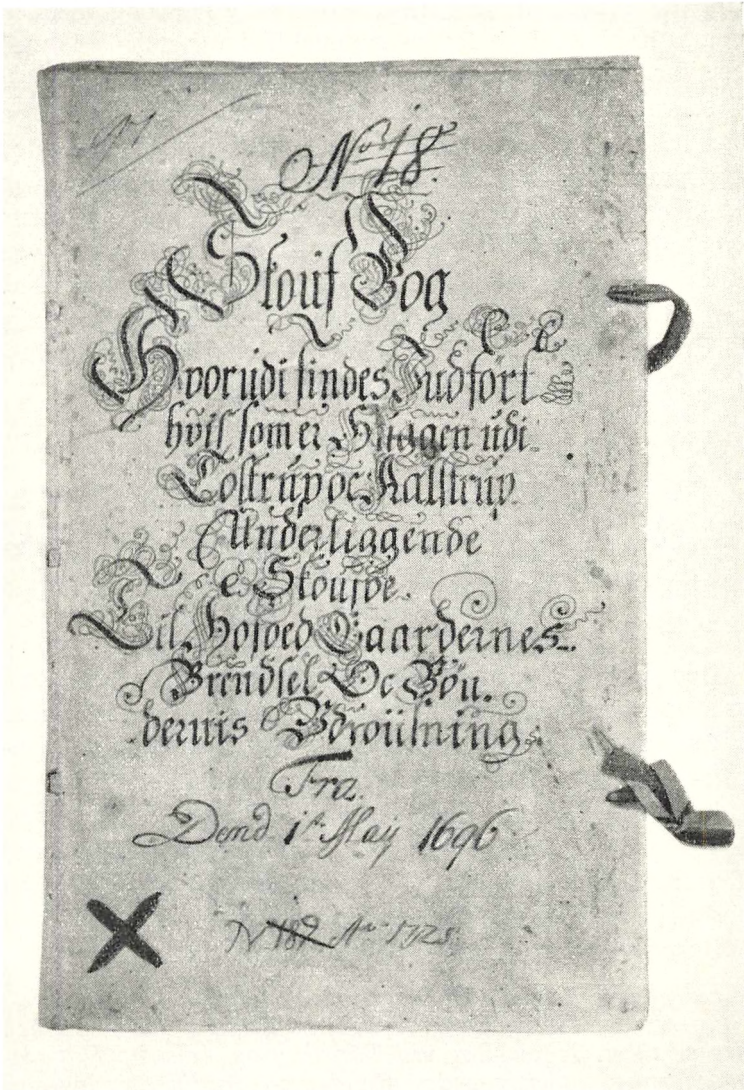 No 18.
Skouf Bog
Hvorudi findes Indført
hvis som er Huggen udi
Løstrup oc Kalstrup
Underliggende
Skoufve.
Til Hofved Gaardernes
Brendsel Oc Bøn
dernis Udviisning
Fra
Dend 1st May 1696
N 189 No